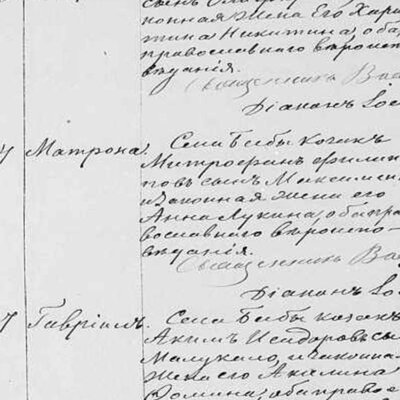 сынъ
конная жена его Хари
тина Никитина, оба
православнаго вѣроис
вѣданія.
Священникъ Вас
Діаконъ Іос
7 Матрона. Села Бѣбы козакъ
Митрофанъ Филип
повъ сынъ Максимен
и законная жена его
Анна Лукина, оба пра
вославнаго вѣроиспо-
вѣданія.
Священникъ Ва
Діаконъ Іос
7 Гавріилъ. Села Бѣбы козакъ
Акимъ Исидоровъ сы
Малукало, и законна
жена его Акилина
Фомина, оба правос